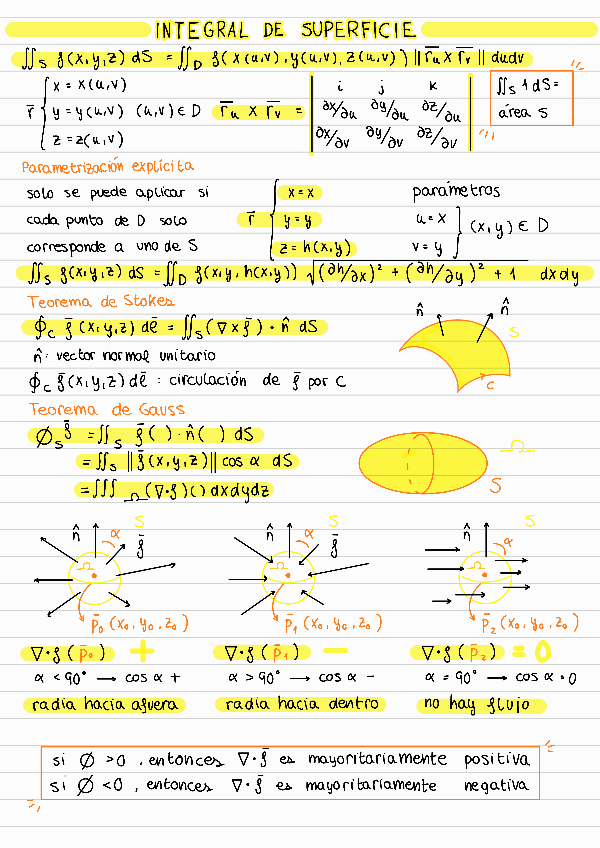 INTEGRAL DE SUPERFICIE
∬s f(x,y,z) dS = ∬D f(x(u,v), y(u,v), z(u,v)) ||r̄u x r̄v|| dudv
x = x(u,v)
r̄ { y = y(u,v) (u,v) ∈ D
z = z(u,v)
r̄u x r̄v =
i j k
∂x/∂u ∂y/∂u ∂z/∂u
∂x/∂v ∂y/∂v ∂z/∂v
∬s 1 dS =
área s
Parametrización explícita
solo se puede aplicar si
cada punto de D solo
corresponde a uno de S
x = x
r̄ { y = y
z = h(x,y)
parámetros
u = x
v = y
(x,y) ∈ D
∬s f(x,y,z) dS = ∬D f(x,y,h(x,y)) √(∂h/∂x)² + (∂h/∂y)² + 1 dxdy
Teorema de Stokes
∮c f̄(x,y,z) dl̄ = ∬s(∇ x f̄) · n̂ dS
n̂: vector normal unitario
∮c f̄(x,y,z) dl̄ : circulación de f̄ por C
n̂ n̂
S
C
Teorema de Gauss
∅s f̄ = ∬s f̄( ) · n̂( ) dS
= ∬s ||f̄(x,y,z)|| cos α dS
= ∭Ω(∇·f̄)() dxdydz
Ω
S
n̂ α S f̄
Ω
p̄0 (x0, y0, z0)
n̂ α S f̄
Ω
p̄1 (x0, y0, z0)
n̂ α S
Ω
p̄2 (x0, y0, z0)
∇·f (p̄0) +
∇·f (p̄1) −
∇·f (p̄2) = 0
α < 90° → cos α +
α > 90° → cos α −
α = 90° → cos α = 0
radia hacia afuera
radia hacia dentro
no hay flujo
si ∅ > 0 , entonces ∇·f̄ es mayoritariamente positiva
si ∅ < 0 , entonces ∇·f̄ es mayoritariamente negativa